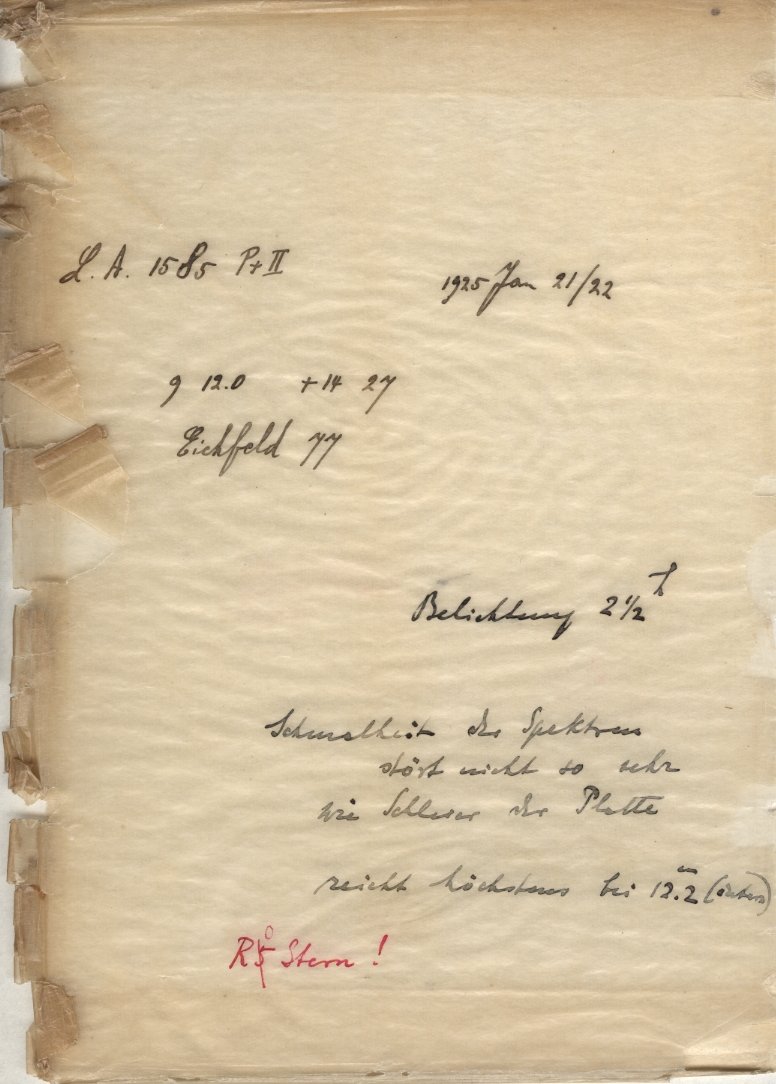 L. A. 1585 P+II
1925 Jan 21/22
9 12.0 +14 27
Eichfeld 77
Belichtung 2 1/2 h
Schmalheit der Spektren
stört nicht so sehr
wie Schleier der Platte
reicht höchstens bei 12.2 m
R5 0 Stern!